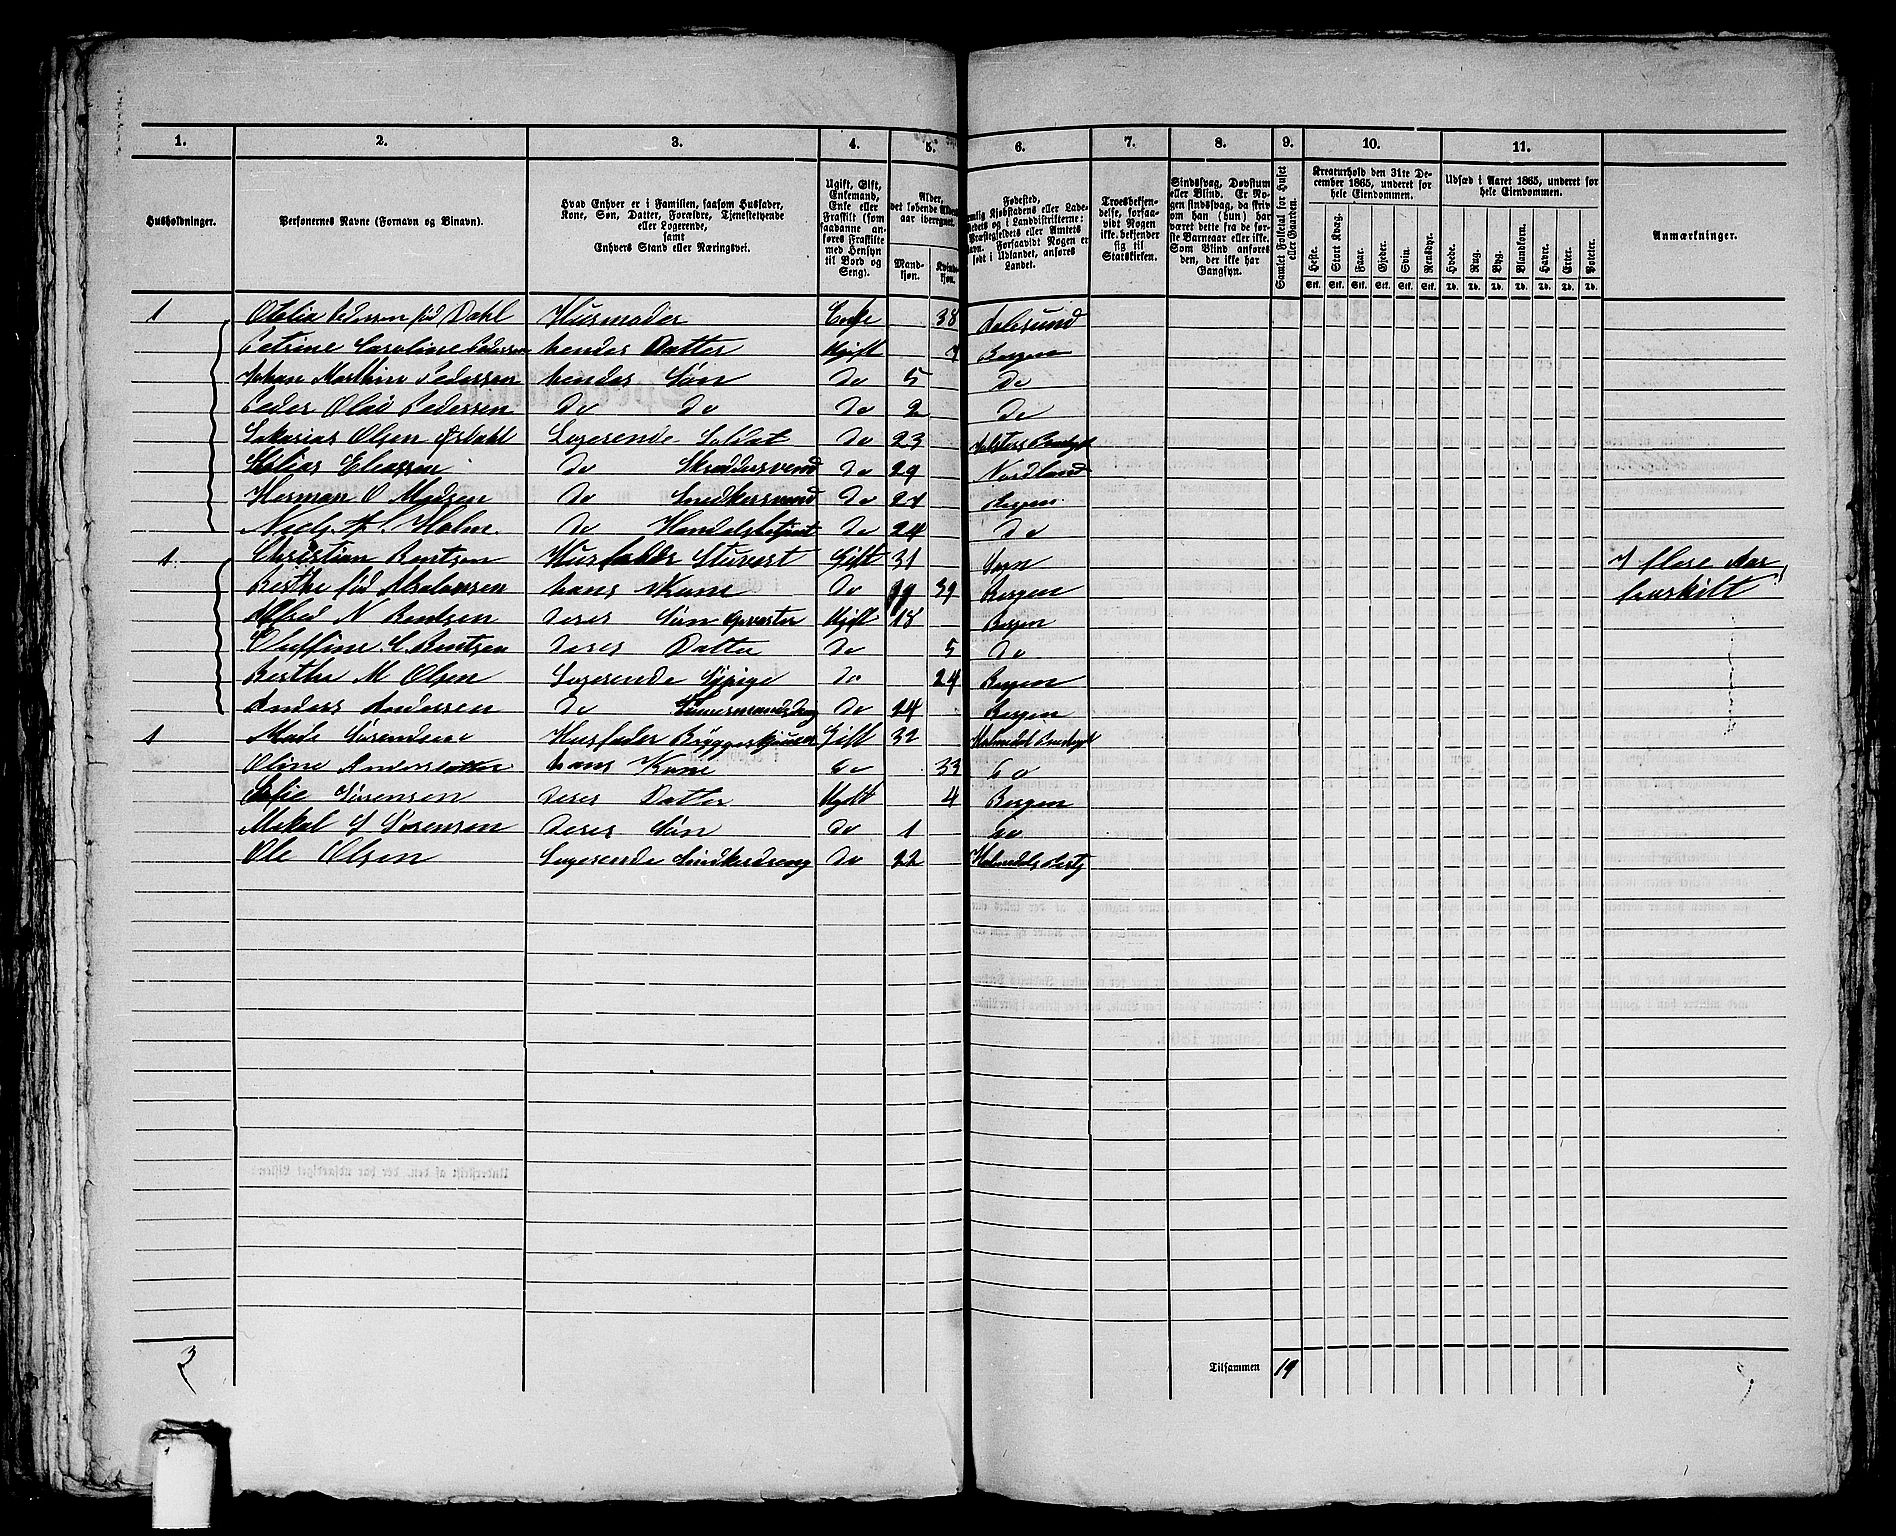 1. 2. 3. 4. 5. 6. 7. 8. 9. 10. 11.
Husholdninger.
Personernes Navne (Fornavn og Binavn).
Hvad Enhver er i Familien, saasom Husfader,
Kone, Søn, Datter, Forældre, Tjenestetyende
eller Logerende,
samt
Enhvers Stand eller Næringsvei.
Ugift, Gift,
Enkemand,
Enke eller
Fraskilt (som
saadanne an-
føres Fraskilte
med Hensyn
til Bord og
Seng).
Alder,
det løbende Alders-
aar iberegnet.
Mand-
kjøn.
Kvinde-
kjøn.
Fødested,
Kjøbstadens eller Lade-
stedets og i Landdistrikterne:
Præstegjeldets eller Amtets
Navn. Forsaavidt Nogen er
født i Udlandet, anføres
Landet.
Troesbekjen-
delse, forsaa-
vidt Nogen
ikke bekjender
sig til
Statskirken.
Sindssvag, Døvstum
eller Blind. Er No-
gen sindssvag, da skriv
om han (hun) har
været dette fra de før-
ste Barneaar eller ikke.
Som Blind anføres
den, der ikke har
Gangsyn.
Samlet Folketal for Huset
eller Gaarden.
Kreaturhold den 31te De-
cember 1865, underet for
hele Eiendommen.
Heste. Stort Kvæg. Faar. Gjeder. Svin. Rensdyr.
Stk. Stk. Stk. Stk. Stk. Stk.
Udsæd i Aaret 1865, underet for
hele Eiendommen.
Hvede. Rug. Byg. Blandkorn. Havre. Erter. Poteter.
Td. Td. Td. Td. Td. Td. Td.
Anmærkninger.
1 Pedersen fød Dahl Husmoder Enke 38 Aalesund
Petrine Caroline Pedersen hendes Datter Ugift 7 Bergen
Johan Marthin Pedersen hendes Søn do 5 do
Peder Olai Pedersen do do do 2 do
Sakarias Olsen Logerende Soldat do 23
Elias Eliassen do Skreddersvend do 29 Nordland
Herman O Madsen do Snedkersvend do 24 Bergen
Niels A S Holm do Handelsbetjent do 24 do
1 Christian Bentsen Husfader Stuvert Gift 31 Sogn I flere Aar
Berthe fød Absalonsen hans Kone do 39 Bergen fraskilt
Alfred N Bentsen deres Søn Opvarter Ugift 18 Bergen
Oluffine C Bentsen deres Datter do 5 do
Berthe M Olsen Logerende Sypige do 24 Bergen
Anders Andersen do Tømmermandsdreng do 24 Bergen
1 Mads Sørensen Husfader Gift 32
Oline Andersdatter hans Kone do 33 do
Sofie Sørensen deres Datter Ugift 4 Bergen
Mikal S Sørensen deres Søn do 1 do
Ole Olsen Logerende Snedkerdreng do 22
3
Tilsammen 19